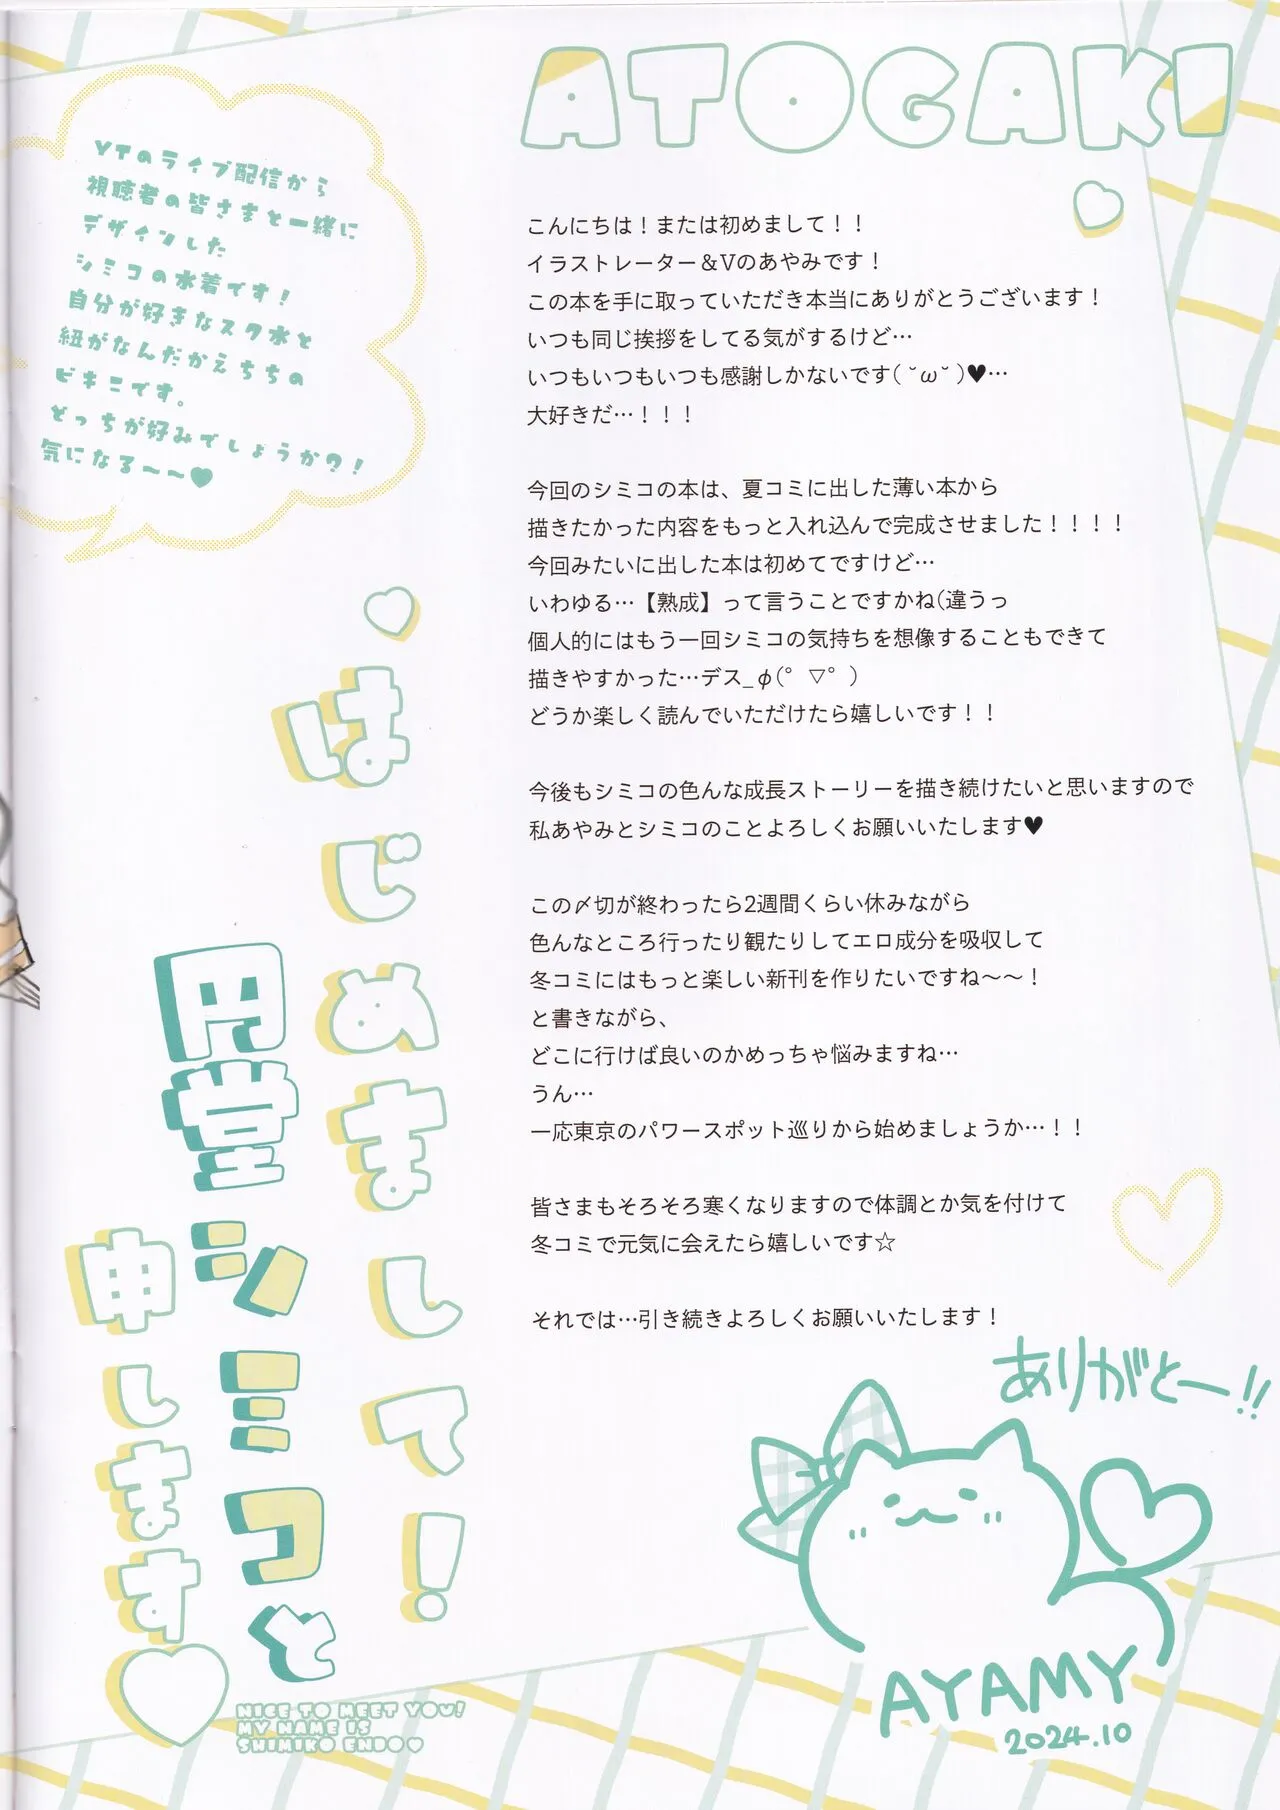 ATOGAKI
こんにちは！または初めまして！！
イラストレーター＆Vのあやみです！
この本を手に取っていただき本当にありがとうございます！
いつも同じ挨拶をしてる気がするけど…
いつもいつもいつも感謝しかないです( ˘ω˘ )♥…
大好きだ…！！！
今回のシミコの本は、夏コミに出した薄い本から
描きたかった内容をもっと入れ込んで完成させました！！！！
今回みたいに出した本は初めてですけど…
いわゆる…【熟成】って言うことですかね(違うっ
個人的にはもう一回シミコの気持ちを想像することもできて
描きやすかった…デス_φ(ﾟ▽ﾟ)
どうか楽しく読んでいただけたら嬉しいです！！
今後もシミコの色んな成長ストーリーを描き続けたいと思いますので
私あやみとシミコのことよろしくお願いいたします♥
この〆切が終わったら2週間くらい休みながら
色んなところ行ったり観たりしてエロ成分を吸収して
冬コミにはもっと楽しい新刊を作りたいですね～～！
と書きながら、
どこに行けば良いのかめっちゃ悩みますね…
うん…
一応東京のパワースポット巡りから始めましょうか…！！
皆さまもそろそろ寒くなりますので体調とか気を付けて
冬コミで元気に会えたら嬉しいです☆
それでは…引き続きよろしくお願いいたします！
ありがとー!!
AYAMY
2024.10
YTのライブ配信から
視聴者の皆さまと一緒に
デザインした
シミコの水着です！
自分が好きなスク水と
紐がなんだかえちちの
ビキニです。
どっちが好みでしょうか？！
気になる～～♥
はじめまして！
円堂シミコと
申します♡
NICE TO MEET YOU!
MY NAME IS
SHIMIKO ENDO♥